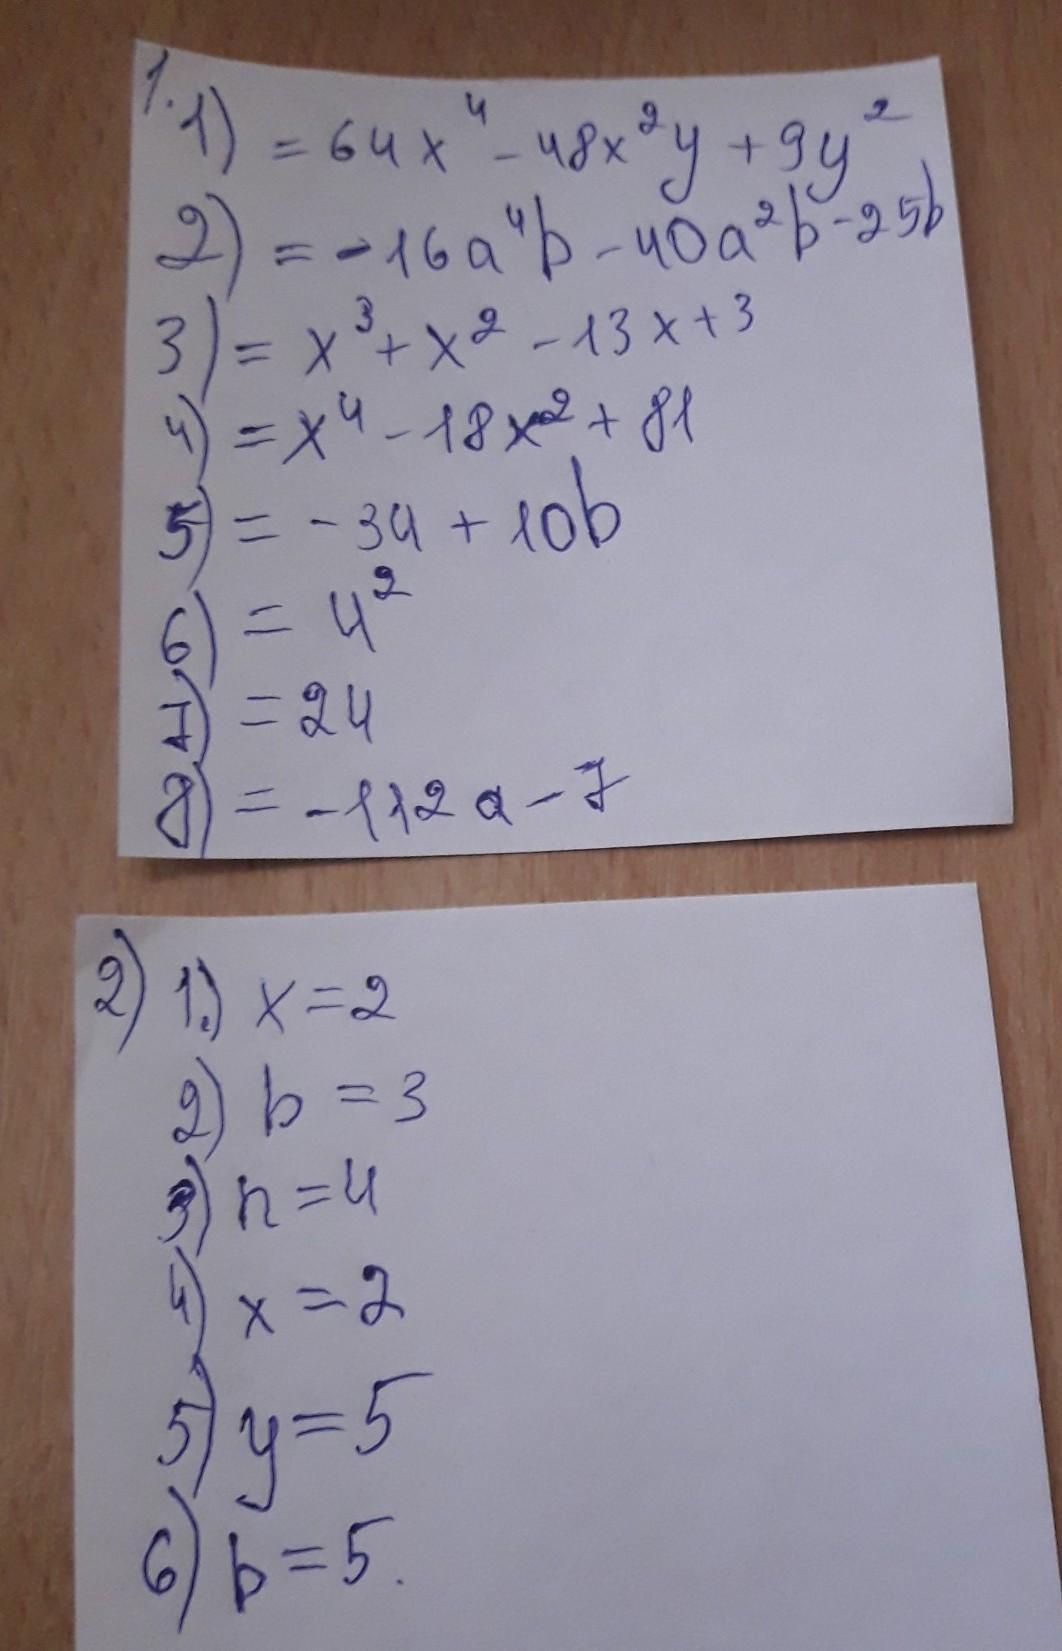 1. 1) = 64x⁴ - 48x²y + 9y²
2) = -16a⁴b - 40a²b - 25b
3) = x³ + x² - 13x + 3
4) = x⁴ - 18x² + 81
5) = -34 + 10b
6) = 4²
7) = 24
8) = -112a - 7
2) 1.) x = 2
2) b = 3
3) n = 4
4) x = 2
5) y = 5
6) b = 5.